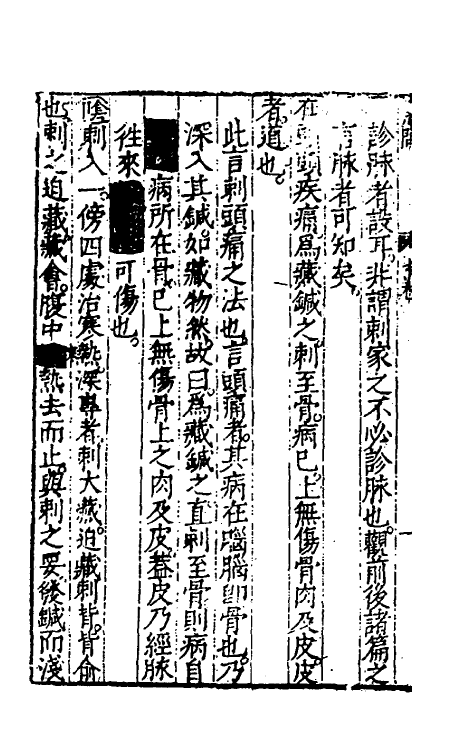 診脉者設耳非謂刺家之不必診脉也觀前後諸篇之
言脉者可知矣
在頭頭疾痛為藏鍼之刺至骨病已上無傷骨肉及皮皮
者道也
此言刺頭痛之法也言頭痛者其病在腦腦即骨也乃
深入其鍼如藏物然故曰為藏鍼之直刺至骨則病自
病所在骨已上無傷骨上之肉及皮蓋皮乃經脉
往來 可傷也
陰刺入一傍四處治寒熱深專者刺大藏迫藏刺背背俞
也刺之迫藏藏會腹中 熱去而止與刺之要後鍼而淺